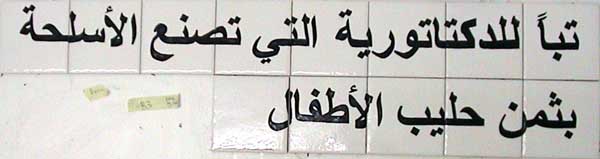 تباً للدكتاتورية التي تصنع الأسلحة
بثمن حليب الأطفال